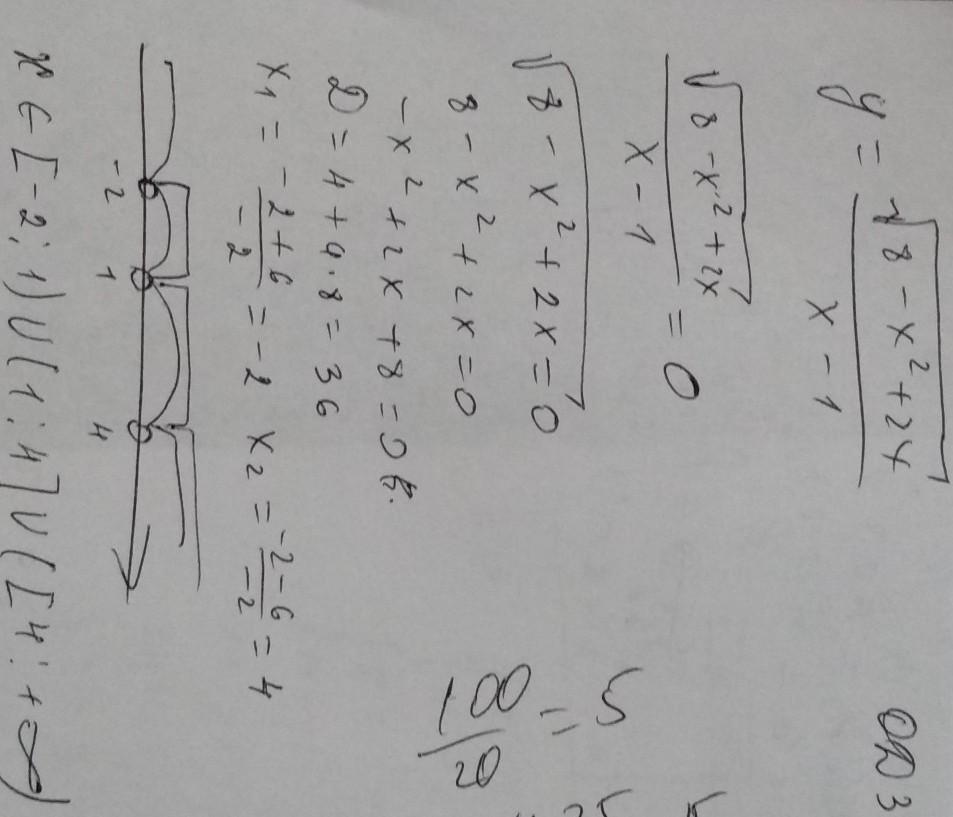 ОДЗ
y = √(8 - x² + 2x) / (x - 1)
√(8 - x² + 2x) / (x - 1) = 0
√(8 - x² + 2x) = 0
8 - x² + 2x = 0
-x² + 2x + 8 = 0
D = 4 + 4·8 = 36
x₁ = (-2+6)/(-2) = -2 x₂ = (-2-6)/(-2) = 4
-2 1 4
x ∈ [-2; 1) U (1; 4] U ([4; +∞)
100/20 = 5